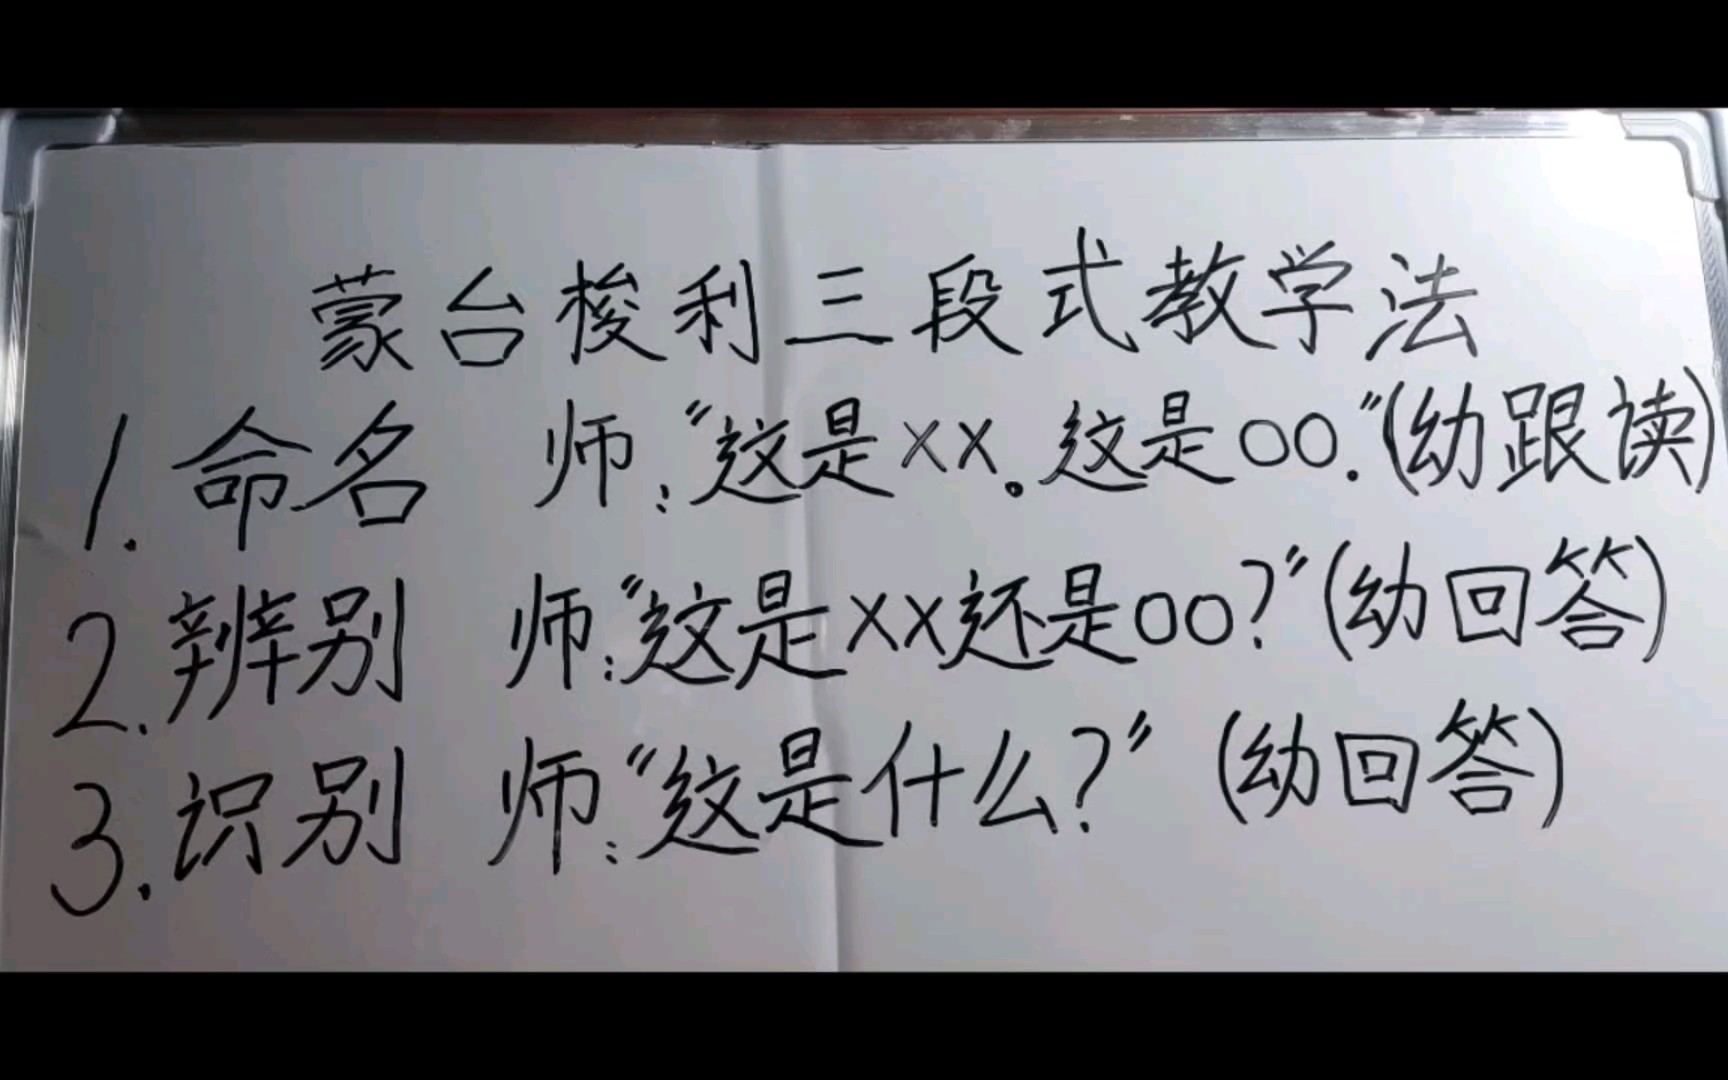 蒙台梭利三段式教学法
1. 命名 师:“这是××。这是○○.”(幼跟读)
2. 辨别 师:“这是××还是○○?”(幼回答)
3. 识别 师:“这是什么?”(幼回答)